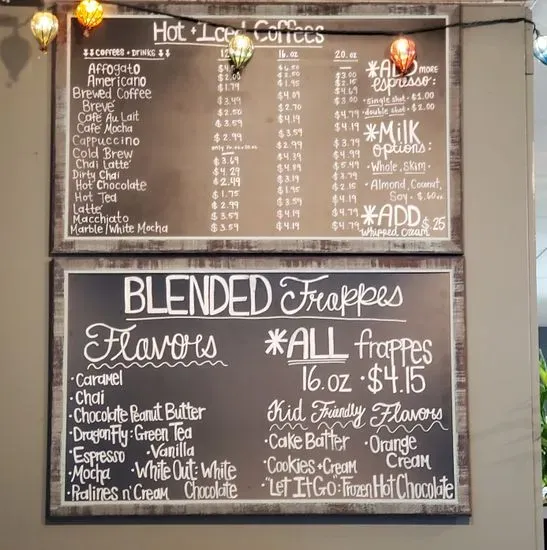 Hot + Iced Coffees
Coffees + Drinks 16. oz 20. oz
Affogato
Americano
Brewed Coffee $1.79 $1.95
Brevé $3.49 $4.09
Café Au Lait $2.50 $2.70
Café Mocha $3.59 $4.19 $4.79
Cappuccino $4.19
Cold Brew $2.99 $3.59
only 16.oz + 20.oz $3.79
Chai Latte $3.69 $4.99
Dirty Chai $4.29 $5.49
Hot Chocolate $2.49 $3.79
Hot Tea $1.75 $1.95 $2.15
Latte $2.99
Macchiato $3.59 $4.19 $4.79
Marble/White Mocha $3.59 $4.19 $4.79
*ADD more
espresso:
• single shot • $1.00
• double shot • $2.00
*Milk
options:
• Whole, Skim •
• Almond, Coconut,
Soy •
*ADD $.25
whipped cream
BLENDED Frappes
Flavors
• Caramel
• Chai
• Chocolate Peanut Butter
• DragonFly: Green Tea
• Espresso • Vanilla
• Mocha • White Out: White
• Pralines n' Cream Chocolate
*ALL frappes
16.oz • $4.15
Kid Friendly Flavors
• Cake Batter • Orange
• Cookies + Cream Cream
• "Let It Go": Frozen Hot Chocolate